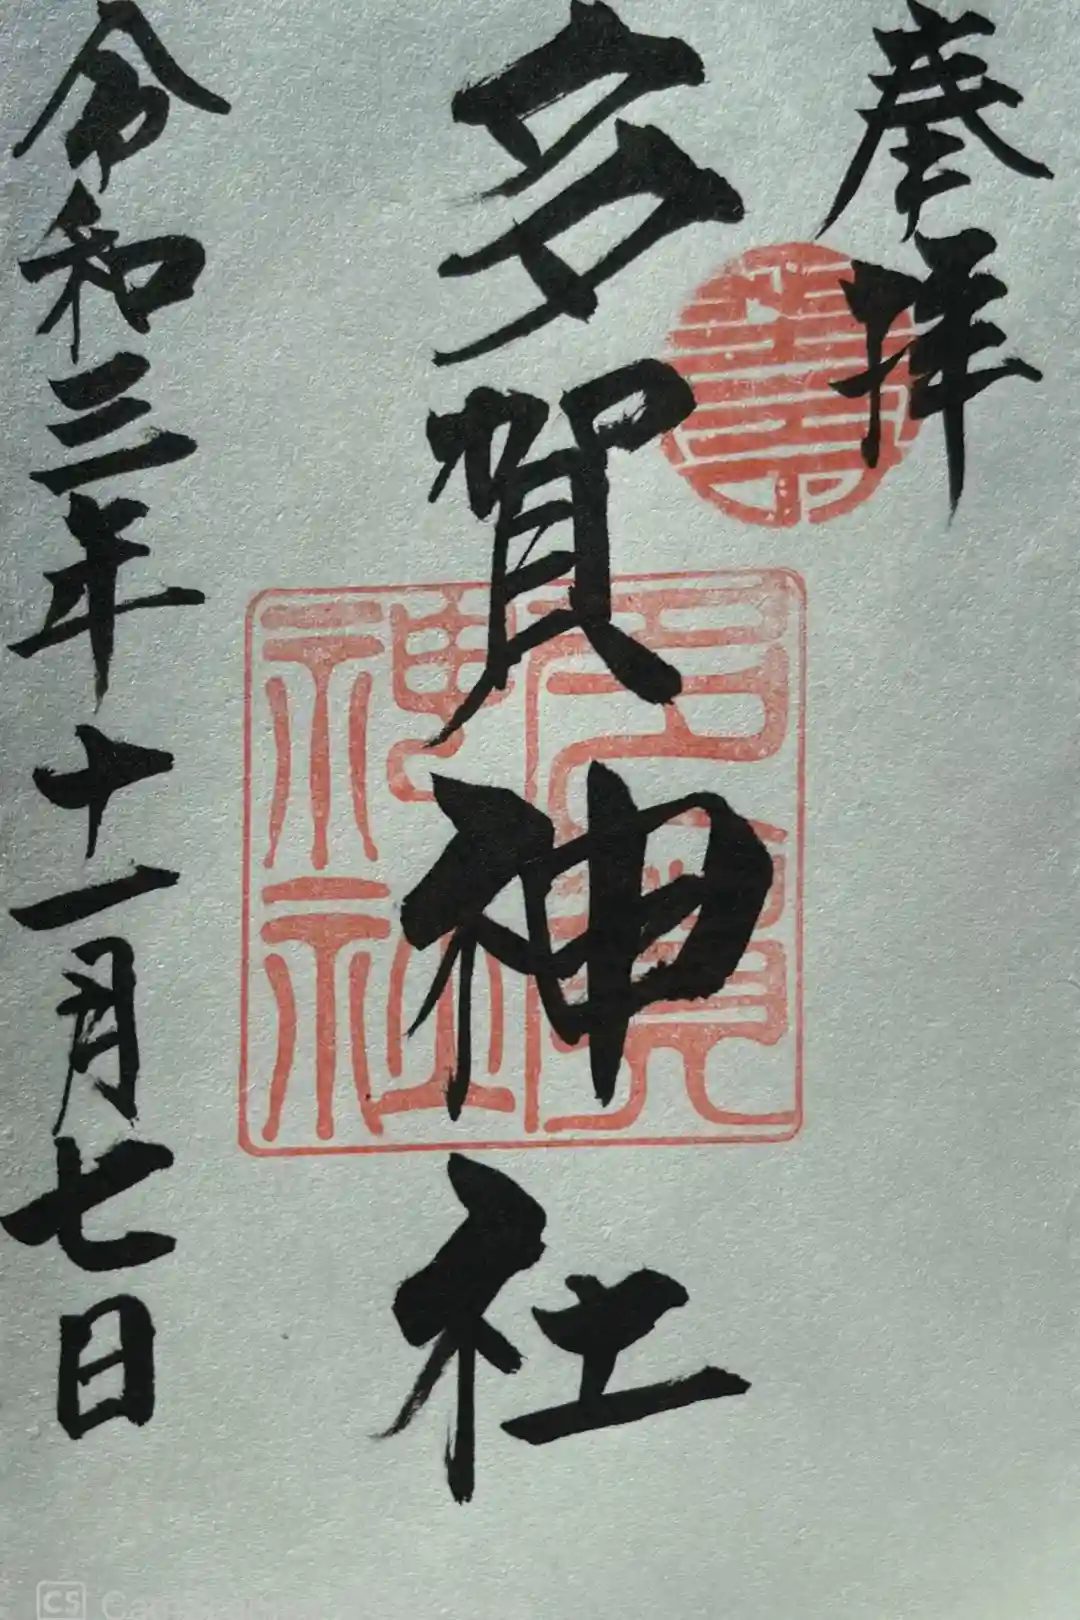 奉拝
多賀神社
多賀神社
令和三年十一月七日
CS